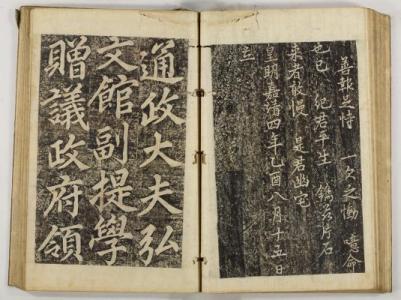 善報是恃 一欠之慟 噫命
也已 紀君平生 鐫玆片石
来者敢慢 是君幽宅
皇明嘉靖四年乙酉八月十五日
立
通政大夫弘
文館副提學
贈議政府領